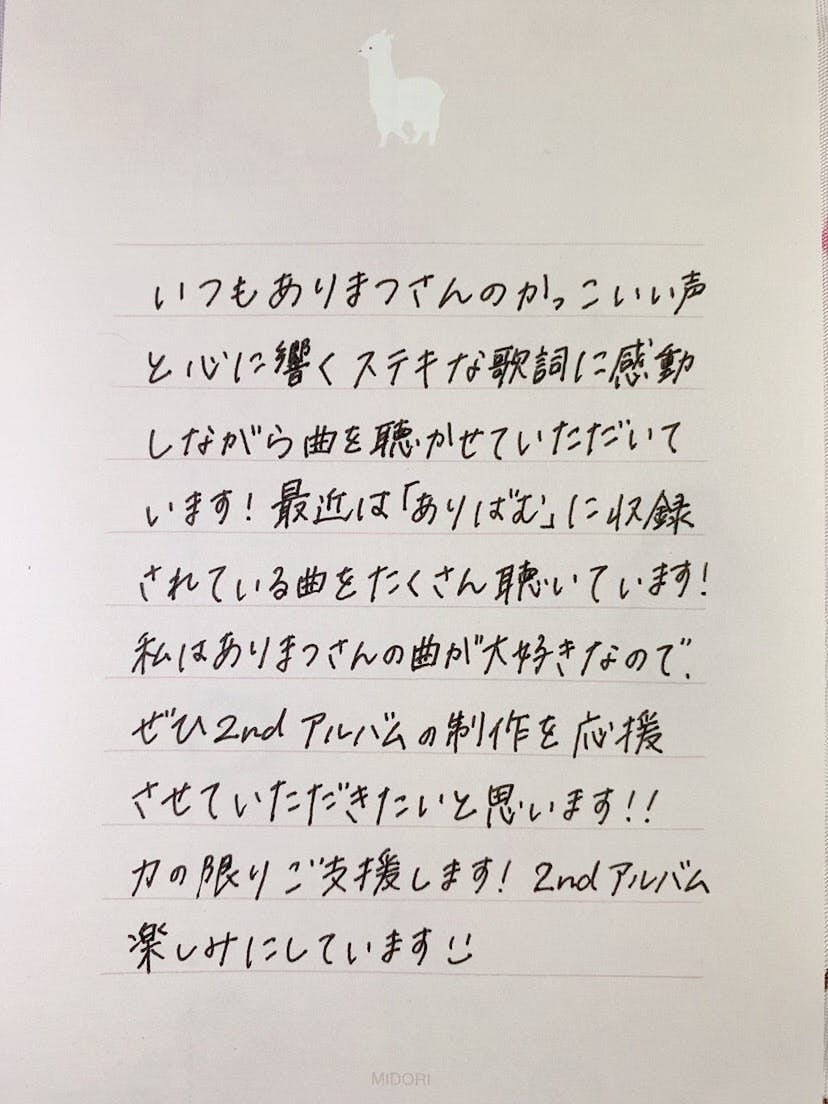 いつもありまつさんのかっこいい声
と心に響くステキな歌詞に感動
しながら曲を聴かせていただいて
います！最近は「ありばむ」に収録
されている曲をたくさん聴いています！
私はありまつさんの曲が大好きなので、
ぜひ2ndアルバムの制作を応援
させていただきたいと思います！！
力の限りご支援します！2ndアルバム
楽しみにしています
MIDORI